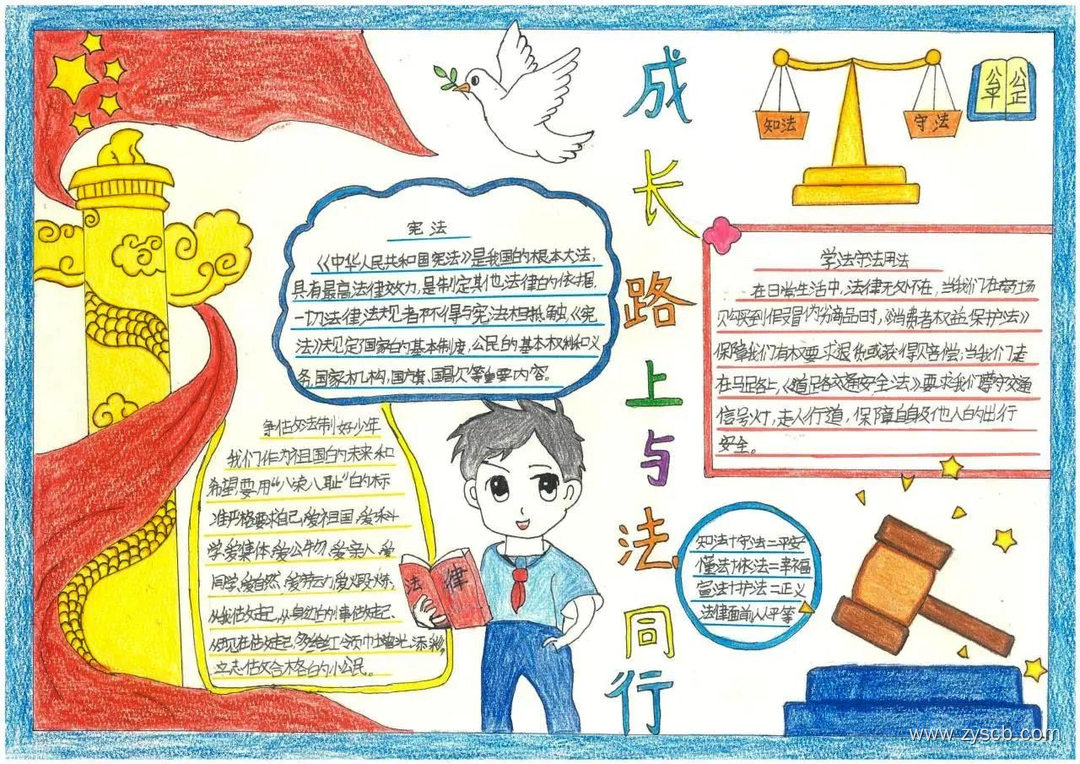 成长路上与法同行
知法
守法
公平
公正
宪法
《中华人民共和国宪法》是我国的根本大法,
具有最高法律效力,是制定其他法律的依据,
一切法律、法规都不得与宪法相抵触。《宪
法》规定了国家的基本制度,公民的基本权利和义
务,国家机构,国旗、国歌等重要内容。
学法守法用法
在日常生活中,法律无处不在,当我们在商场
购买到假冒伪劣商品时,《消费者权益保护法》
保障我们有权要求退货或获得赔偿;当我们走
在马路上,《道路交通安全法》要求我们遵守交通
信号灯,走人行道,保障自身及他人的出行
安全。
争做法制好少年
我们作为祖国的未来和
希望要用“八荣八耻”的标
准严格要求自己,爱祖国,爱科
学,爱集体,爱公物,爱亲人,爱
同学,爱自然,爱劳动,
从我做起,从身边的事做起,
从现在做起,多给红领巾增光添彩,
立志做合格的小公民。
法律
知法+守法=平安
懂法+依法=幸福
宣法+护法=正义
法律面前人人平等
www.zyscb.com